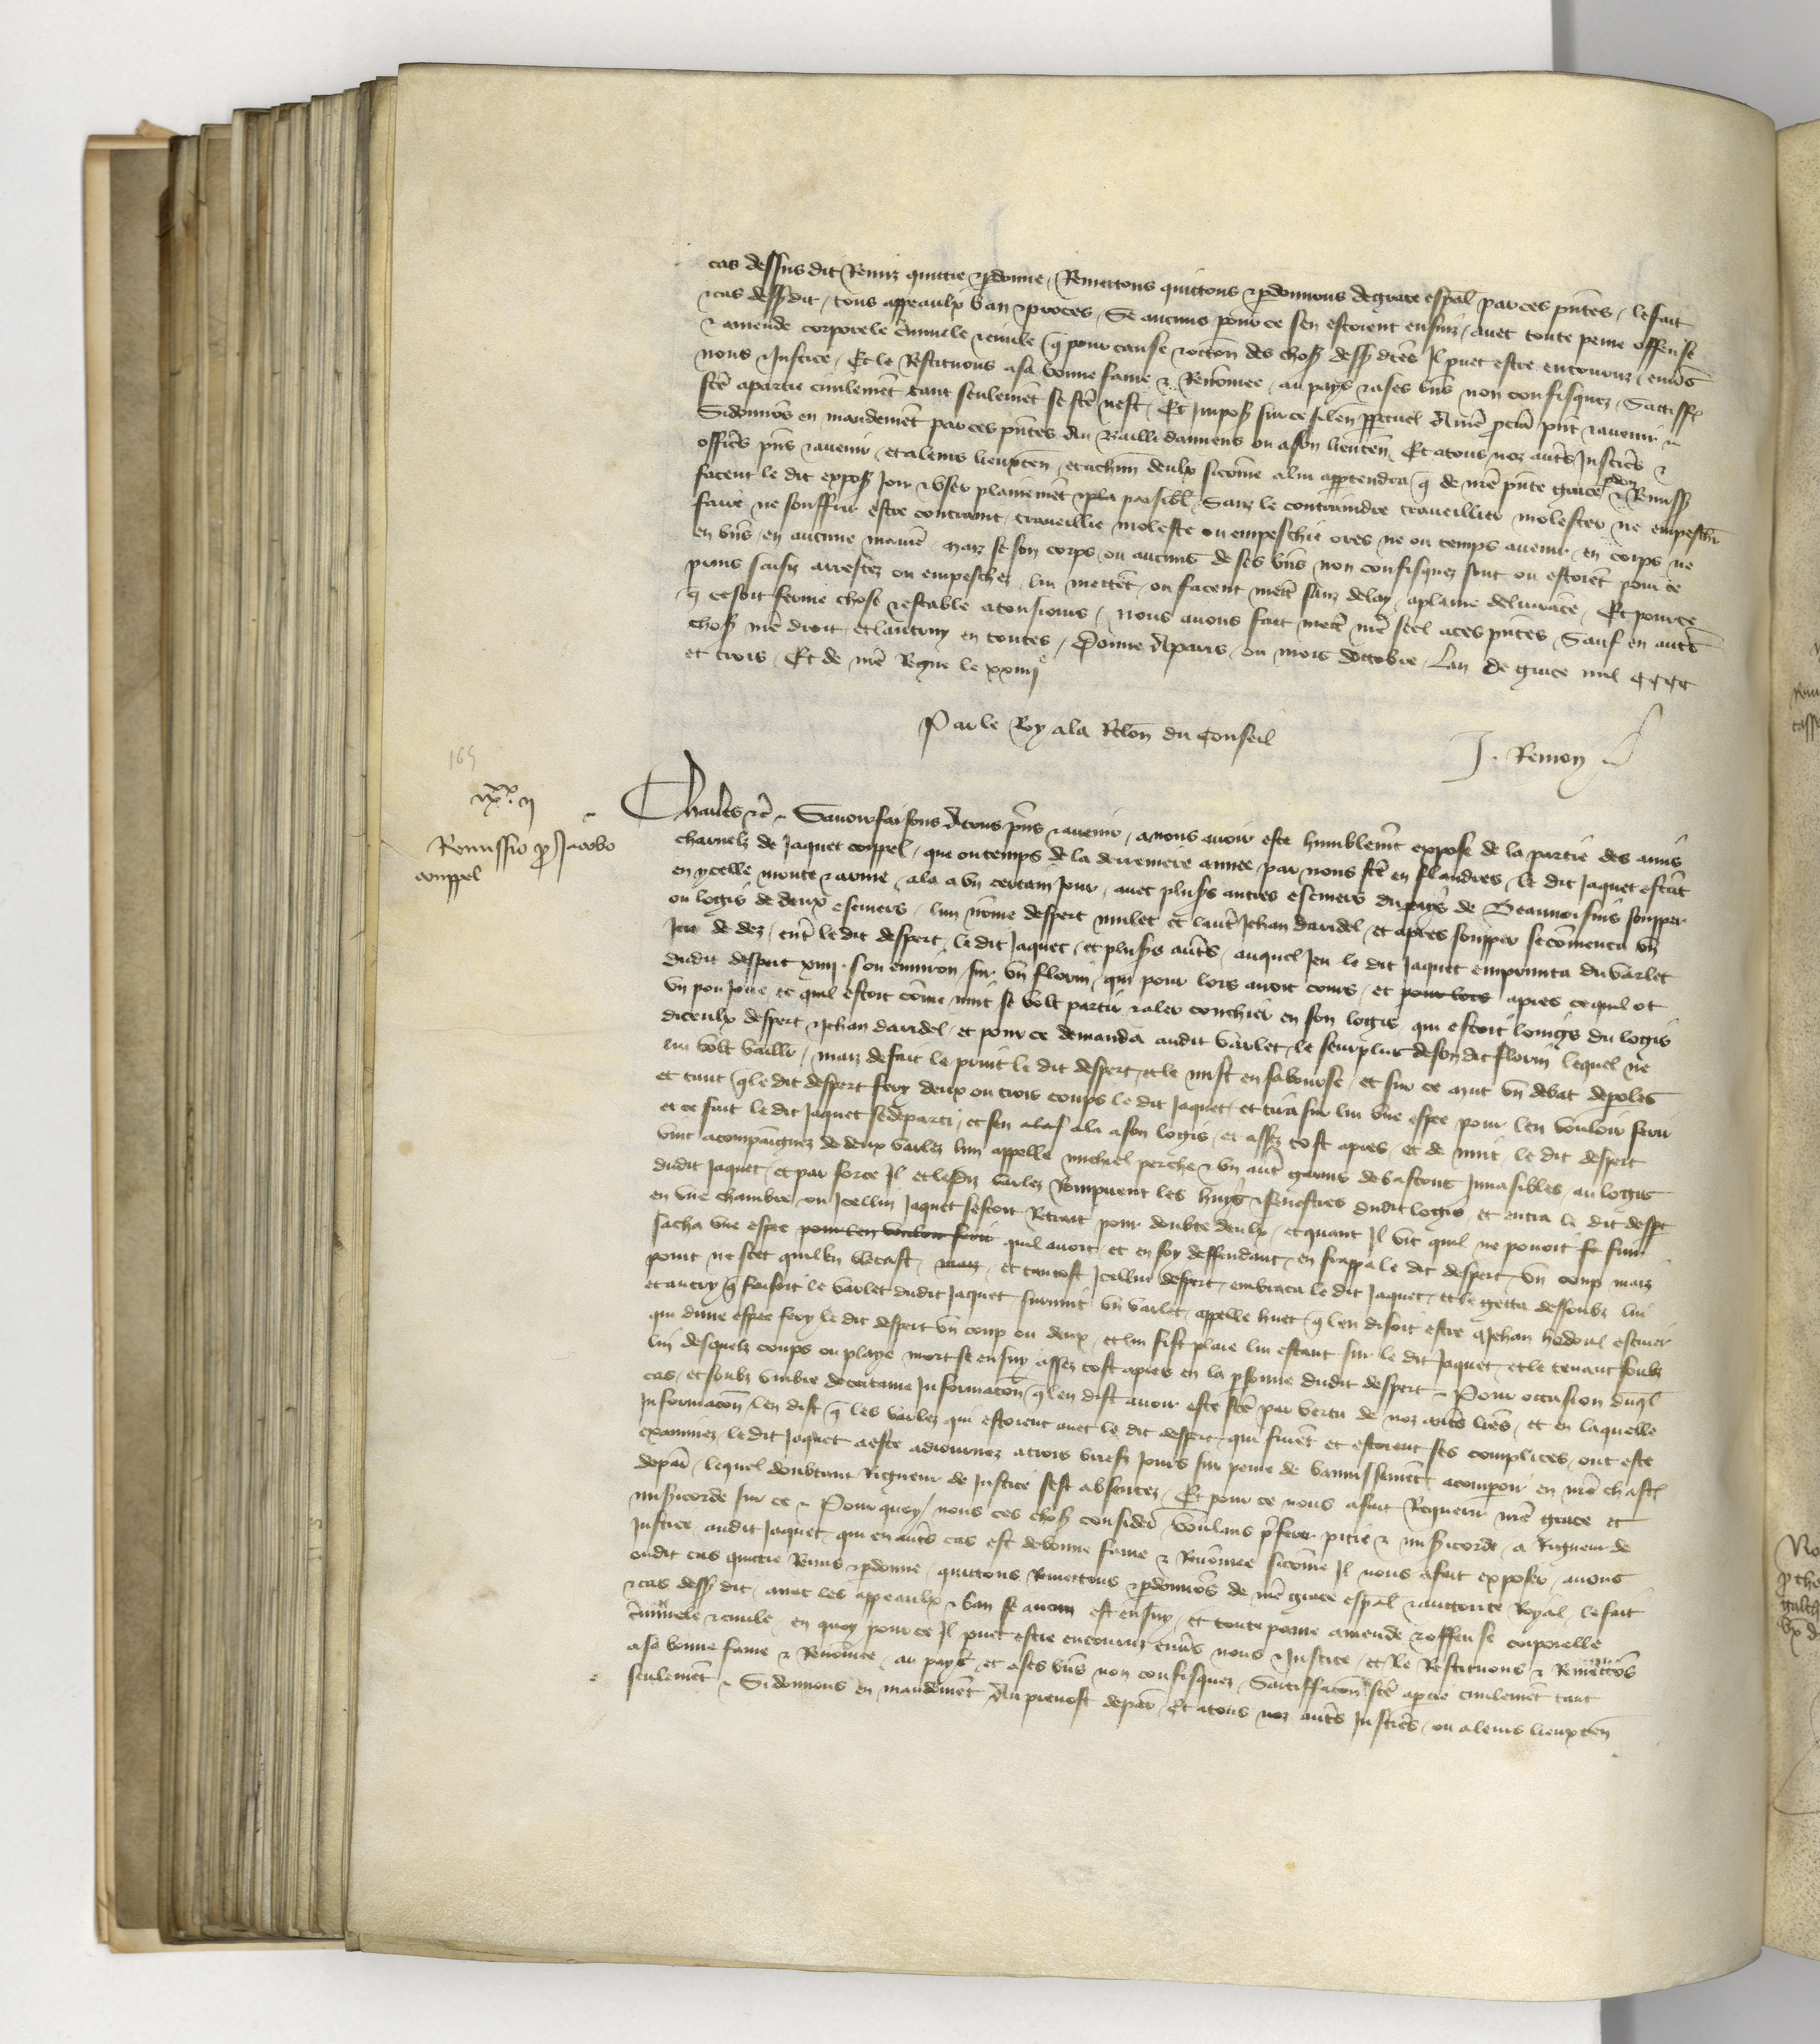 cas dessus dit Remiz quittie & pdonne, Remettons quittons & pdonnons de grace espal par ces pntes, le fait
& cas dessusdit, tous appeaulx ban & proces, Se aucuns pour ce sen estoient ensuiz, avec toute peine offense
& amende corporele criminele & civile q pour cause & occon des choses dess dces Il puet estre encouruz envs
nous & Justice, Et le Restituons a sa bonne fame & Renomee, au pays & a ses bns non confisquez, Sattisff
fce a partie civilement tant seulement se fce nest, Et Imposs sur ce silen ppetuel A nre pcur pnt & avenir
Si donnons en mandement par ces pntes Au Bailli damiens ou a son lieuten Et a tous noz autres Justiciers &
officrs pns & avenir, et a leurs lieuxten, et a chun deulx si come a lui appartendra q de nre pnte grace pdon & Remiss
facent le dit expose Joir & user plainement & pla paisibl, Sanz le contraindre travaillier molester ne empeschr
faire ne souffrir estre contraint, travaillie moleste ou empeschie ores ne ou temps avenir, en corps ne
en bns, en aucune maniere, maiz se son corps ou aucuns de ses bns non confisquez sont ou estoient pour ce
prins saisiz arrestez ou empeschez, lui mettent, ou facent mettre sanz delay, a plaine delivrance, Et pour ce
q ce soit ferme chose & estable a tousjours, nous avons fait mettre nre seel a ces pntes, Sauf en autres
choses nre droit, et lautruy en toutes, Donne A paris, ou mois doctobre, Lan de grace mil CCCC
et trois, Et de nre Regne le xxiiije
Par le Roy a la Relon du Conseil
J. Remon
165
ixxx. ij
Remissio p Jacobo
couppel
Charles &c. Savoir faisons A tous pns & avenir, a nous avoir este humblemt expose de la partie des amis
charnelz de Jaquet couppel, que ou temps de la derreniere armee, par nous fce en flandres, le dit Jaquet estat
en ycelle monte & arme, ala a un certain Jour, avec plusrs autres escuiers du pays de Beauvoisins soupper
ou logis de deux escuiers, lun nome despert millet et lautre Jehan daridel, et apres soupper se comenca un
Jeu de dez, entre ledit despert, le dit Jaquet, et plusrs autres, auquel Jeu le dit Jaquet emprunta du varlet
dudit despert xiiij. s ou environ, sur un florin, qui pour lors avoit cours, et pour lors apres ce quil ot
un pou Joue, et quil estoit come nuit se volt partir & aler couchier en son logis, qui estoit loings du logis
diceulx despert & Jehan daridel, et pour ce demanda audit varlet, le seurplus de son dit florin lequel ne
lui volt baillr, maiz de fait le print le dit despert, et le mist en sa bourse, et sur ce mut un debat de poles
et tant q le dit despert fery deux ou trois coups le dit Jaquet, et tira sur lui une espee pour len vouloir ferir
et ce fait le dit Jaquet se departi, et sen alas ala a son logis, et assez tost apres, et de nuit, le dit despert
vint acompaignez de deux varlez lun appelle michiel perche & un autre garnis de bastons Invasibles, au logis
dudit Jaquet, et par force Il et lesdiz varlez Rompirent les huys & fenestres dudit logis, et entra le dit despt
en une chambre, ou Icellui Jaquet sestoit Retrait pour doubte deulx, et quant Il vit quil ne povoit se fuir
sacha une espee pour len vouloir ferir quil avoit, et en soy deffendant, en frappa le dit despert, un coup maiz
point ne scet quil len blecast, maiz, et tantost Icellui despert, embraca le dit Jaquet, et le getta dessoubz lui
et au cry q faisoit le varlet dudit Jaquet, survint un varlet, appelle huet q len disoit estre a Jehan hedoul escuier
qui dune espee fery le dit despert un coup ou deux, et lui fist plaie lui estant sur le dit Jaquet, et le tenant soubz
lui desquelz coups ou playe mort se ensuy assez tost apres en la psonne dudit despert. Pour occasion duql
cas, et soubz umbre de certaine Informacon q len dist avoir este fce par vertu de noz autres lres, et en laquelle
Informacon len dist q les varlez qui estoient avec le dit despert, qui furent et estoient ses complices, ont este
examinez, le dit Jaquet a este adiournez a trois briefs Jours sur peine de bannissement, a comparoir en nre chastl
de paris, lequel doubtant Rigueur de Justice sest absentez, Et pour ce nous a fait Requerir nre grace et
misericorde sur ce. Pour quoy, nous ces choses considers voulans pferer pitie & misericorde, a Rigueur de
Justice, audit Jaquet, qui en autres cas est de bonne fame & Renomee si come Il nous a fait exposer, avons
oudit cas quittie Remis & pdonne, quittons Remettons & pdonnons de nre grace espal & auctorite Royal, le fait
& cas dess dit, avec les appeaulx & ban se aucun est ensuy, et toute paine amende & offense corporelle
criminele & civile, en quoy pour ce Il puet estre encouruz envs nous & Justice, et le Restituons & Remettons
a sa bonne fame & Renomee, au pays, et a ses bns non confisquez, Sattisfacon fce a ptie civilement tant
seulement. Si donnons en mandement Au prevost de paris, Et a tous noz autres Justiciers, ou a leurs lieuxten